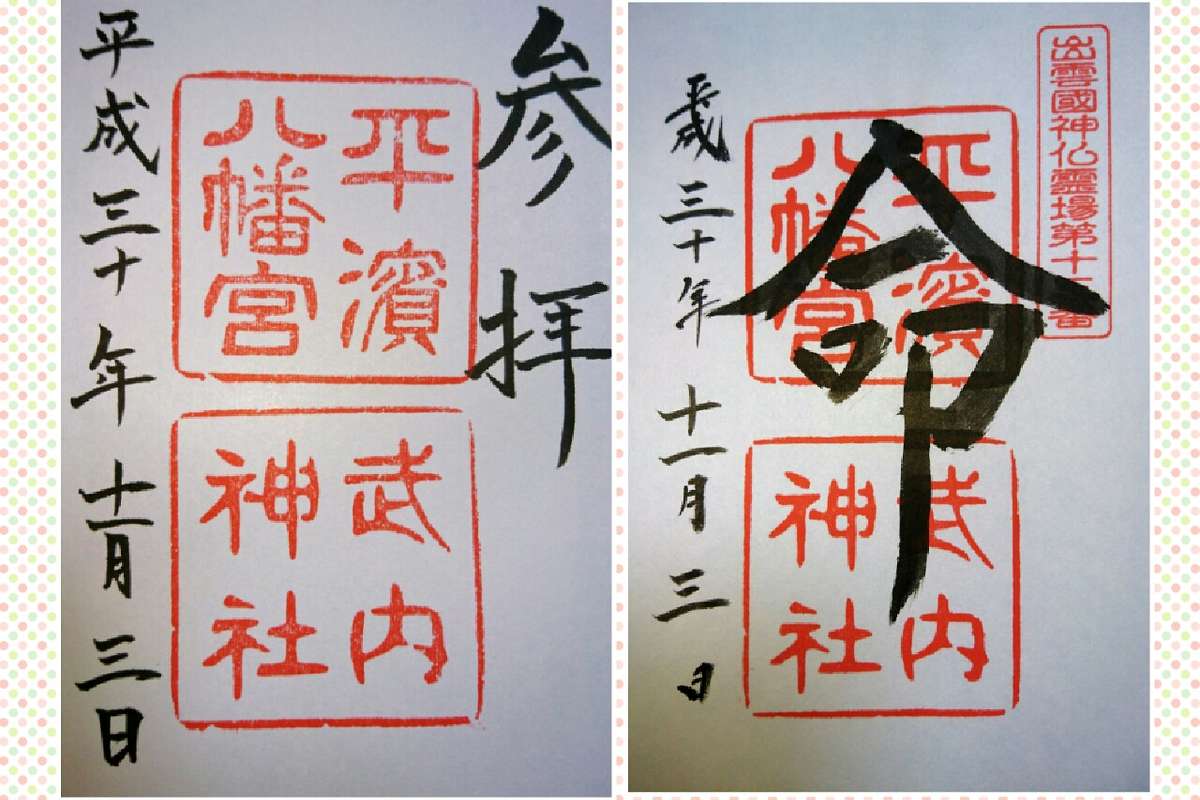 参拝
平濱
八幡宮
武内
神社
平成三十年十一月三日
出雲國神仏霊場第十番
命
平濱
八幡宮
武内
神社
平成三十年十一月三日